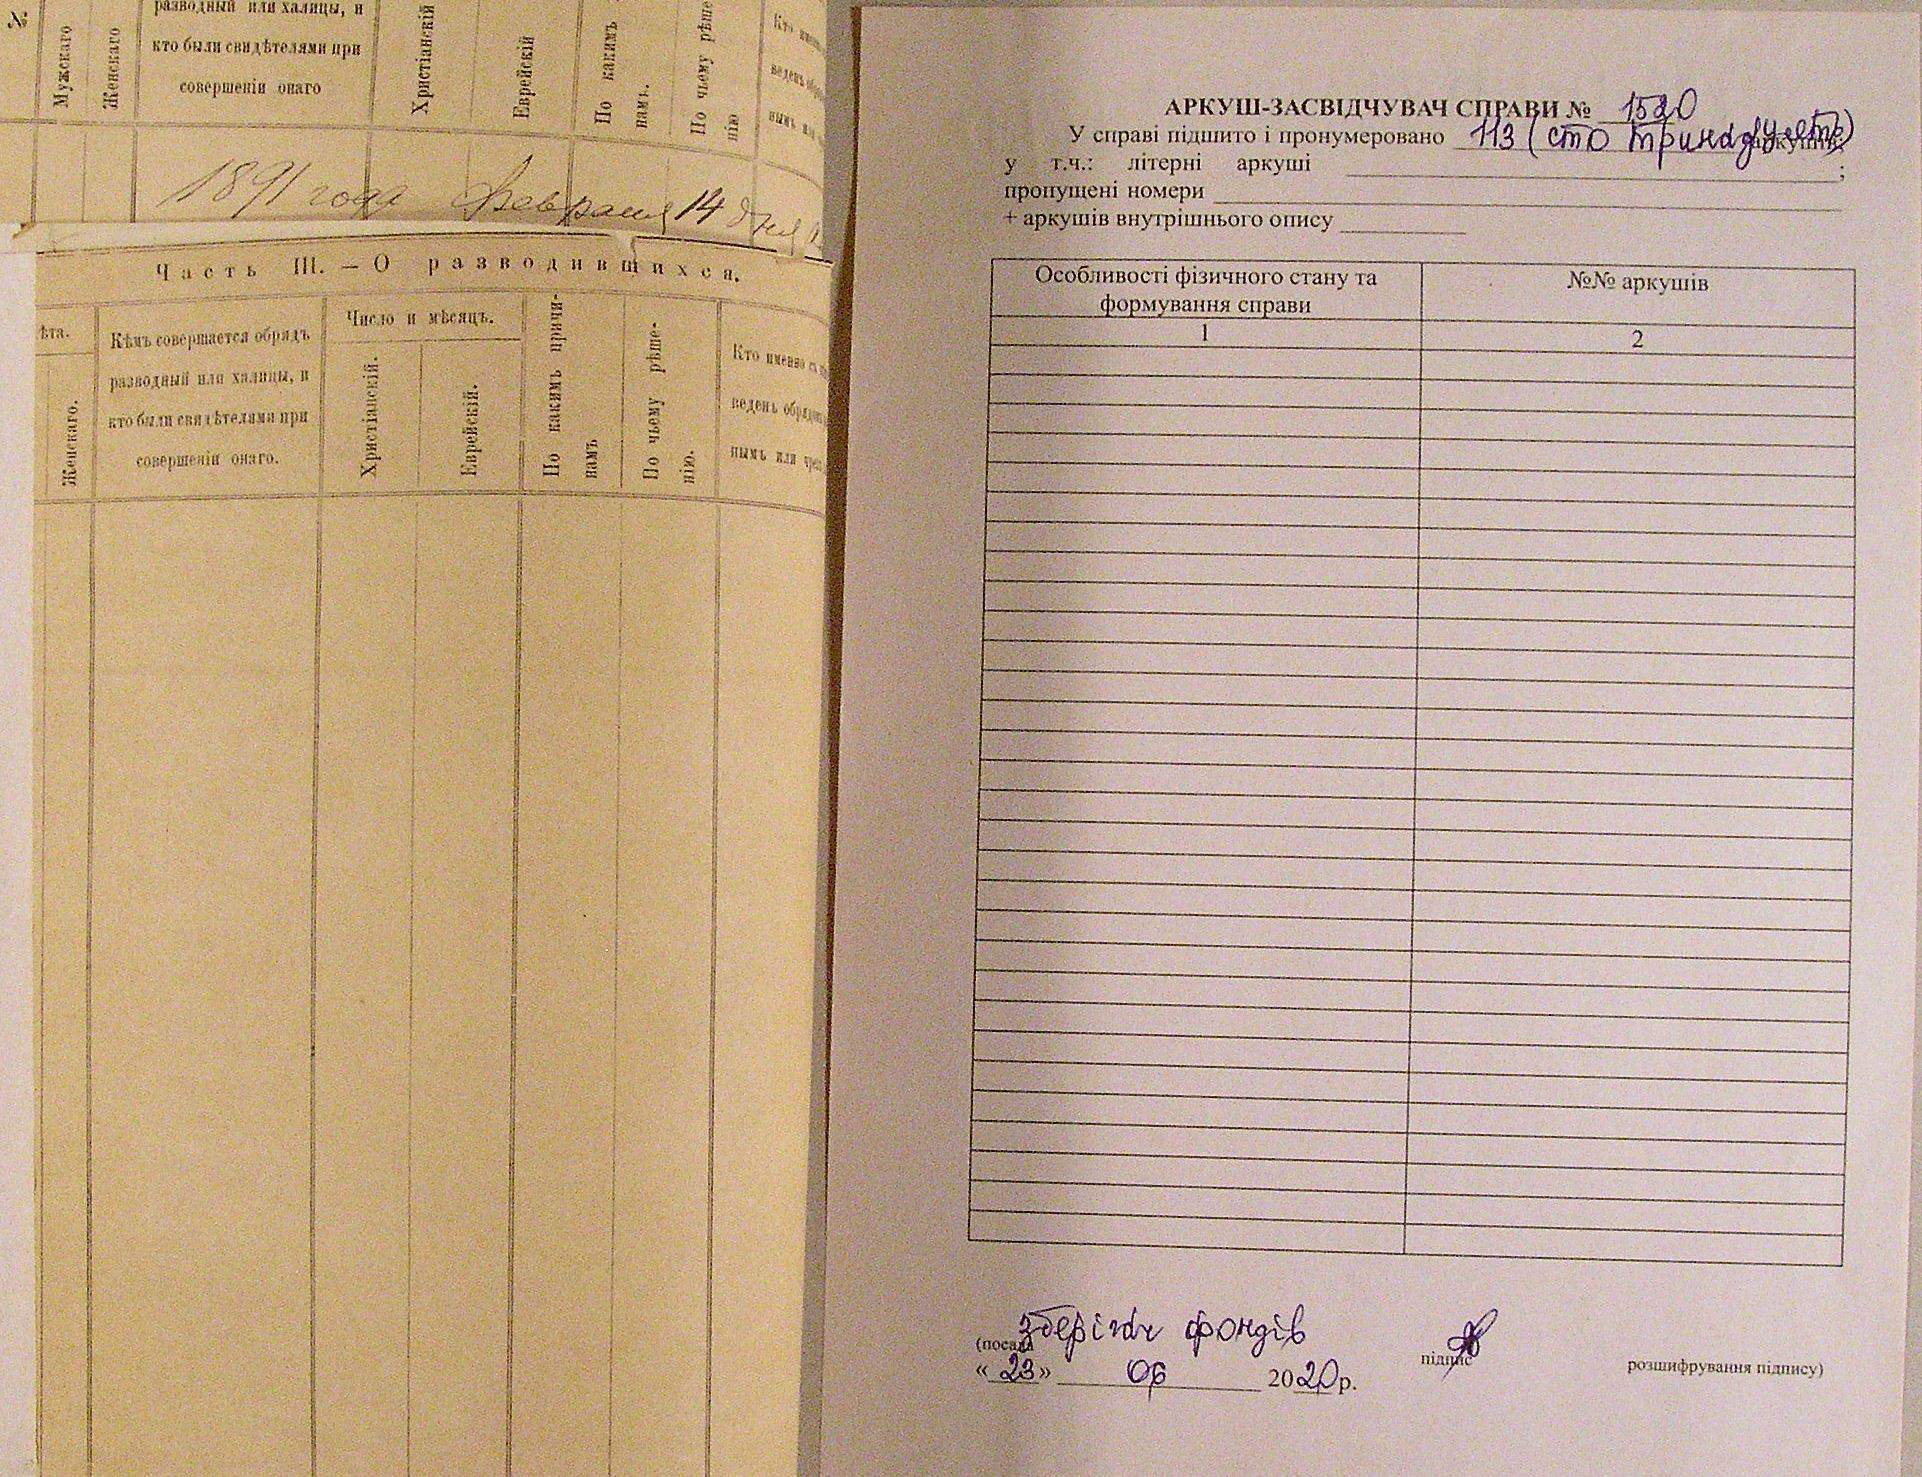 №
Мужскаго
Женскаго
разводный или халицы, и
кто были свидѣтелями при
совершеніи онаго
Христіанскій
Еврейскій
По какимъ
намъ.
По чьему рѣше
нію
Кто
веденъ
нымъ или
1891 года Февраля 14 дня
Часть III. — О разводившихся.
ѣта.
Женскаго.
Кѣмъ совершается обрядъ
разводный или халицы, и
кто были свидѣтелями при
совершеніи онаго.
Число и мѣсяцъ.
Христіанскій.
Еврейскій.
По какимъ причи-
намъ
По чьему рѣше-
нію.
Кто именно
веденъ обряд
нымъ или чрез
АРКУШ-ЗАСВІДЧУВАЧ СПРАВИ № 1520
У справі підшито і пронумеровано 113 (сто тринадцять) аркушів;
у т.ч.: літерні аркуші ;
пропущені номери
+ аркушів внутрішнього опису
Особливості фізичного стану та
формування справи
№№ аркушів
1
2
зберігач фондів
(посада
підпис
розшифрування підпису)
« 23 » 06 2020 р.